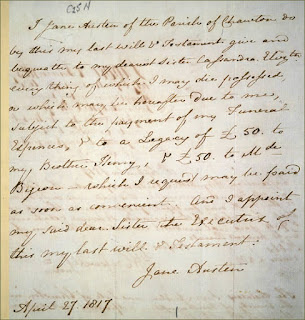 I Jane Austen of the Parish of Chawton do
by this my last Will & Testament give and
bequeath to my dearest Sister Cassandra Elizth
every thing of which I may die possessed,
or which may be hereafter due to me,
subject to the payment of my Funeral
Expences, & to a Legacy of £50. to
my Brother Henry, & £50. to M. de
Bigeon – which I request may be paid
as soon as convenient. And I appoint
my said dear Sister the Executrix of
this my last will & Testament.
Jane Austen
April 27 1817